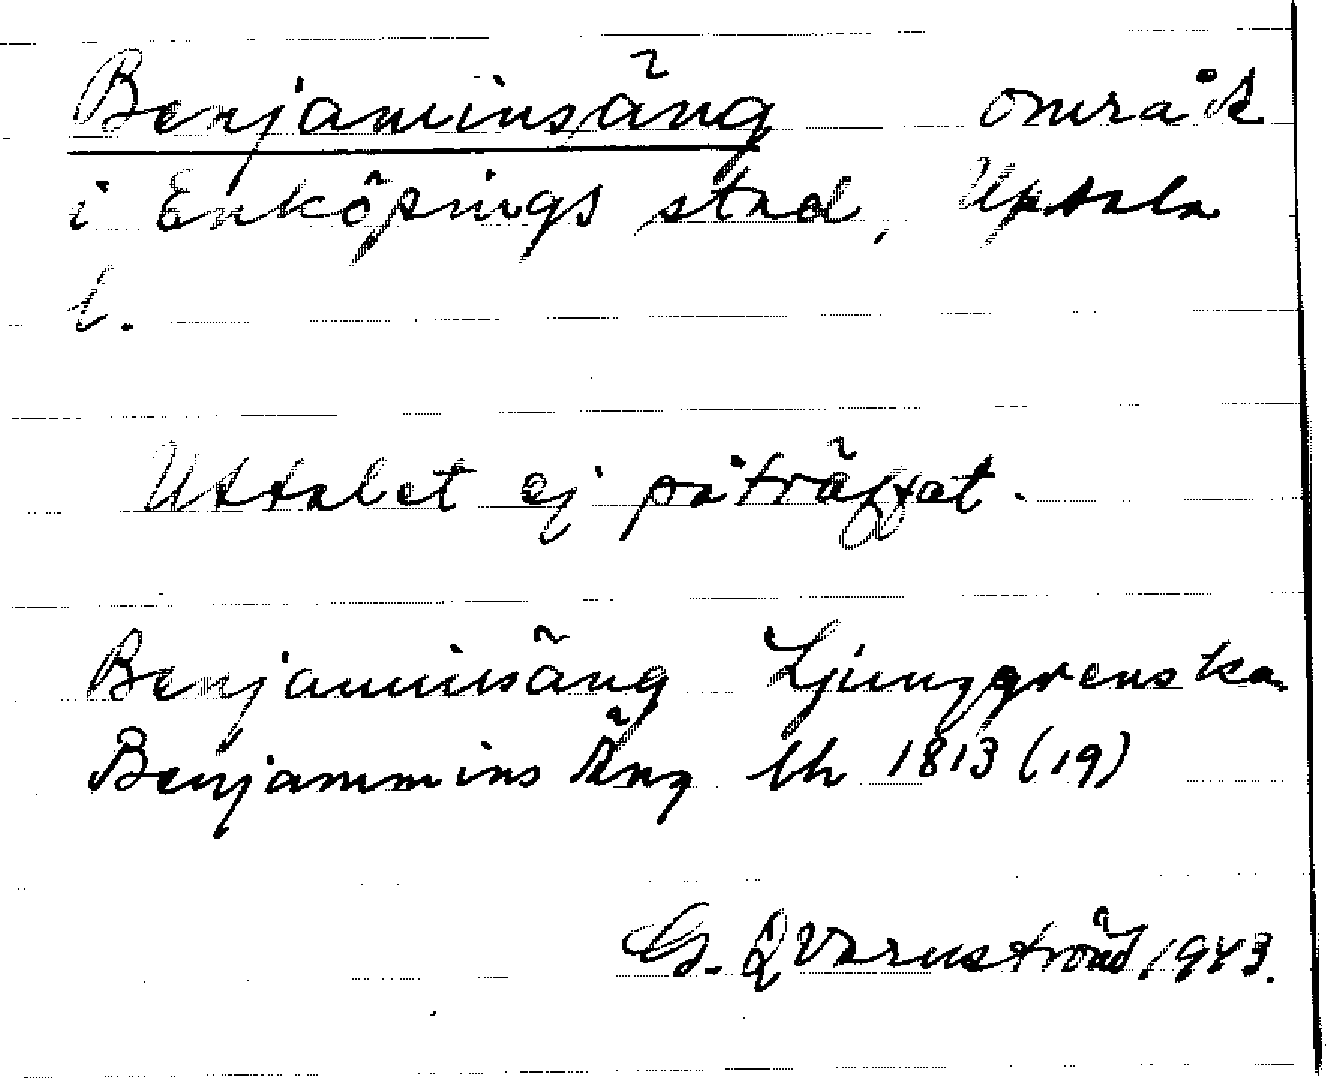 Benjaminsäng område
i Enköpings stad, Uppsala
l.
Uttalet ej påträffat.
Benjaminsäng Ljunggrenska
Benjammins Äng lh 1813 (19)
G. Qvarnström 1943.